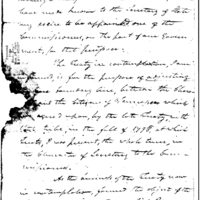 have made known to the Secretary of State
my desire to be appointed one of the
Commissioners, on the part of our Govern-
ment, for this purpose.
The treaty in contemplation, I am
is for the purpose of adjusting
some boundary lines, between the
and the Citizens of Tennessee which
agreed upon by the late treaty, with
tribe, in the fall of 1798, at which
treaty, I was present, the whole time, in
the Character of Secretary to the Com-
missioners.
As the Council of the treaty now
in contemplation, formed the object of the